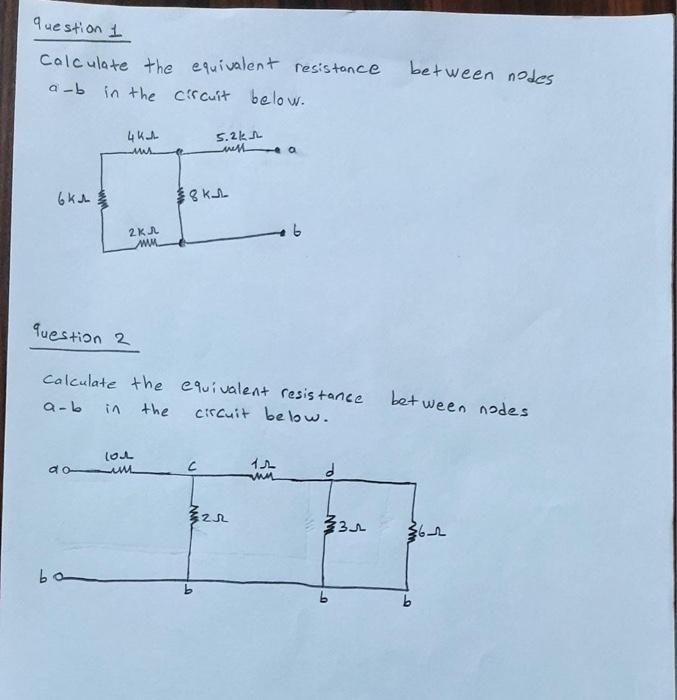 question 1
Calculate the equivalent resistance between nodes
a-b in the circuit below.
4kΩ 5.2kΩ
a
6kΩ 8kΩ
2kΩ b
question 2
Calculate the equivalent resistance between nodes
a-b in the circuit below.
10Ω c 1Ω d
a
2Ω 3Ω 6Ω
b
b b b